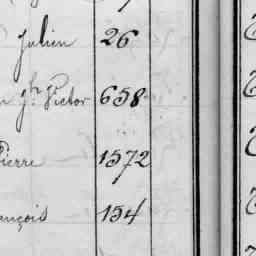 Julien 26
n jh Victor 658
Pierre 1572
ançois 154